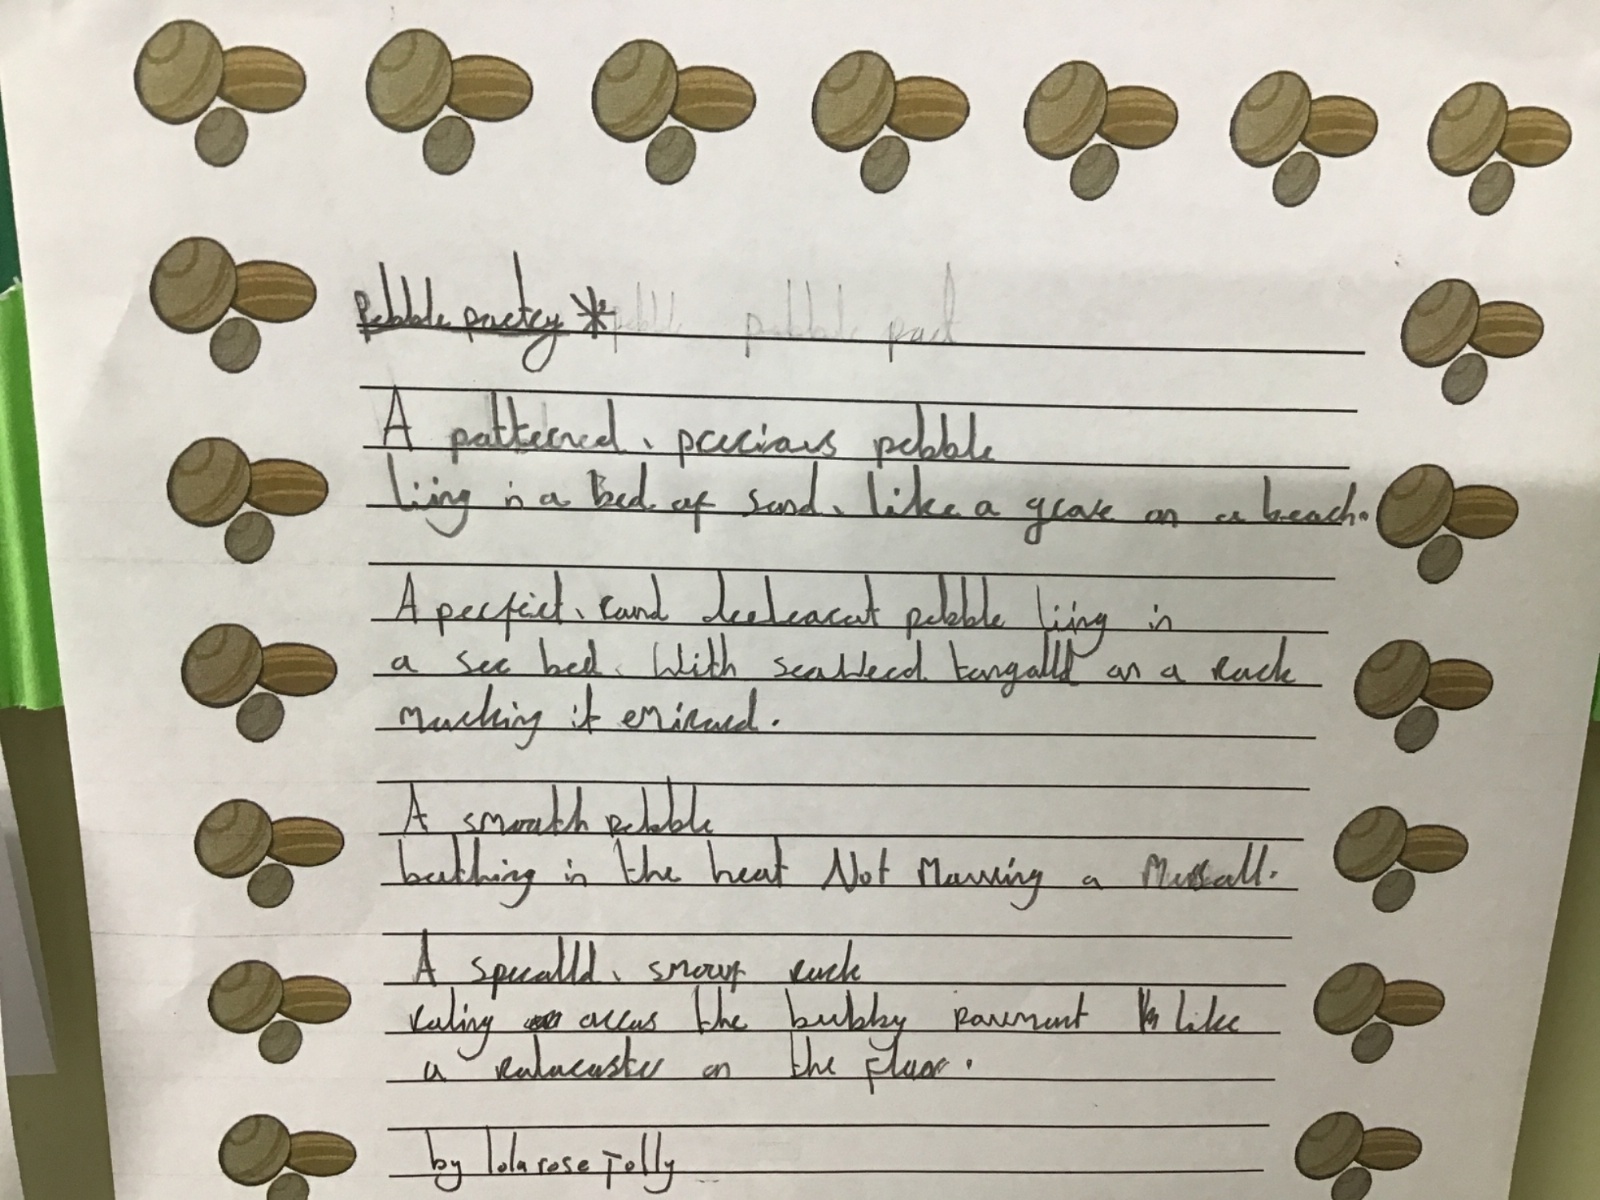 Pebble poetry *
A patterned, precious pebble
liing in a bed of sand, like a grave on a beach.
A perfect, round deeleacat pebble liing in
a see bed. With seaweed tangalld on a rock
marking it emiraud.
A smooth pebble
bathing in the heat Not Mowving a Mussall.
A specalld, snowy rock
roling accros the bubby pavement like
a rolacoaster on the floor.
by lola rose Jolly